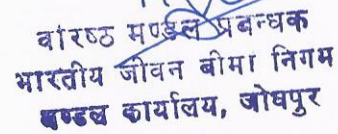 वरिष्ठ मण्डल प्रबन्धक
भारतीय जीवन बीमा निगम
मण्डल कार्यालय, जोधपुर